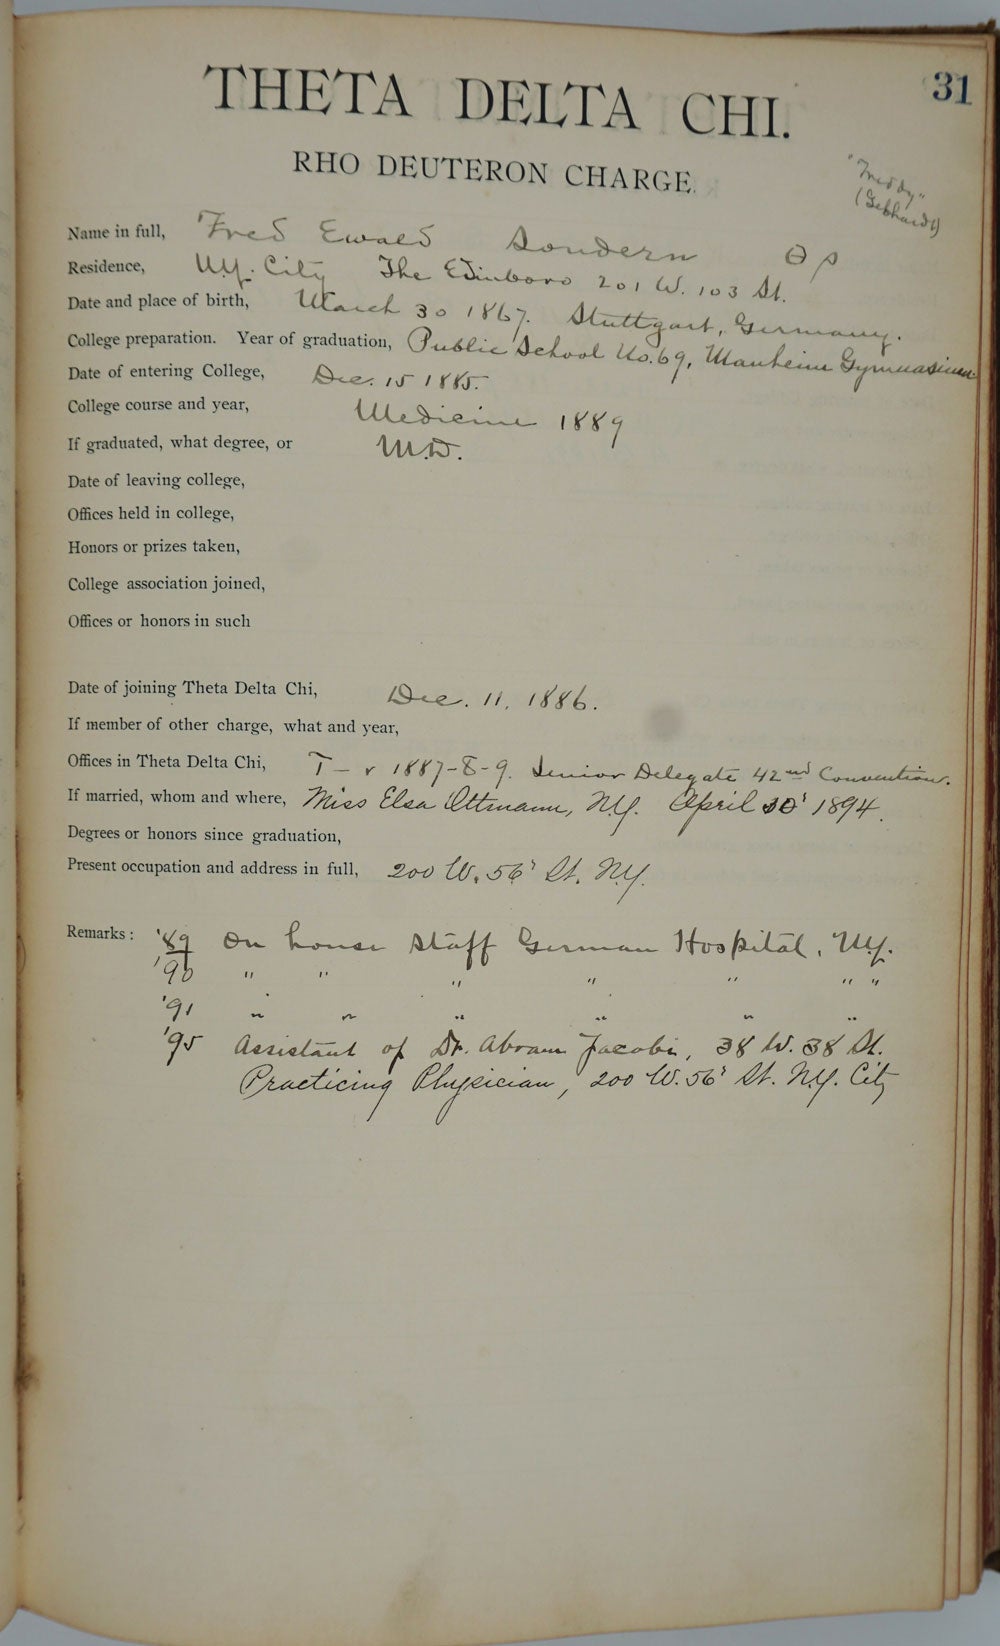 31
THETA DELTA CHI.
RHO DEUTERON CHARGE.
"Freddy"
(Gebhardt)
Name in full, Fred Ewald Sondern Θ ρ
Residence, N.Y. City The Edinboro 201 W. 103 St.
Date and place of birth, March 30 1867. Stuttgart, Germany.
College preparation. Year of graduation, Public School No. 69, Manheim Gymnasium.
Date of entering College, Dec. 15 1885.
College course and year, Medicine 1889
If graduated, what degree, or M.D.
Date of leaving college,
Offices held in college,
Honors or prizes taken,
College association joined,
Offices or honors in such
Date of joining Theta Delta Chi, Dec. 11, 1886.
If member of other charge, what and year,
Offices in Theta Delta Chi, T – r 1887-8-9. Senior Delegate 42nd Convention.
If married, whom and where, Miss Elsa Ottmann, N.Y. April 30' 1894.
Degrees or honors since graduation,
Present occupation and address in full, 200 W. 56' St. N.Y.
Remarks: '89 On house staff German Hospital, N.Y.
'90 " " " " " " "
'91 " " " " " "
'95 Assistant of Dr. Abram Jacobi, 38 W. 38 St.
Practicing Physician, 200 W. 56' St. N.Y. City